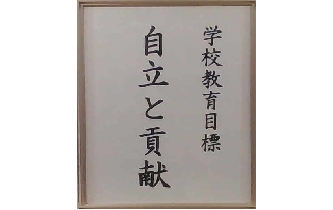 学校教育目標
自立と貢献